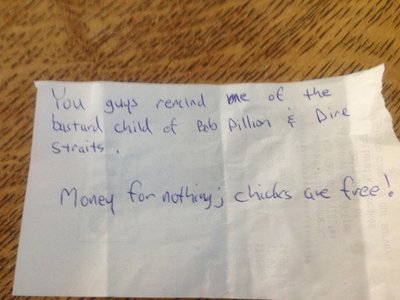 You guys remind me of the
bastard child of Bob Dillion & Dire
Straits.
Money for nothing; chicks are free!